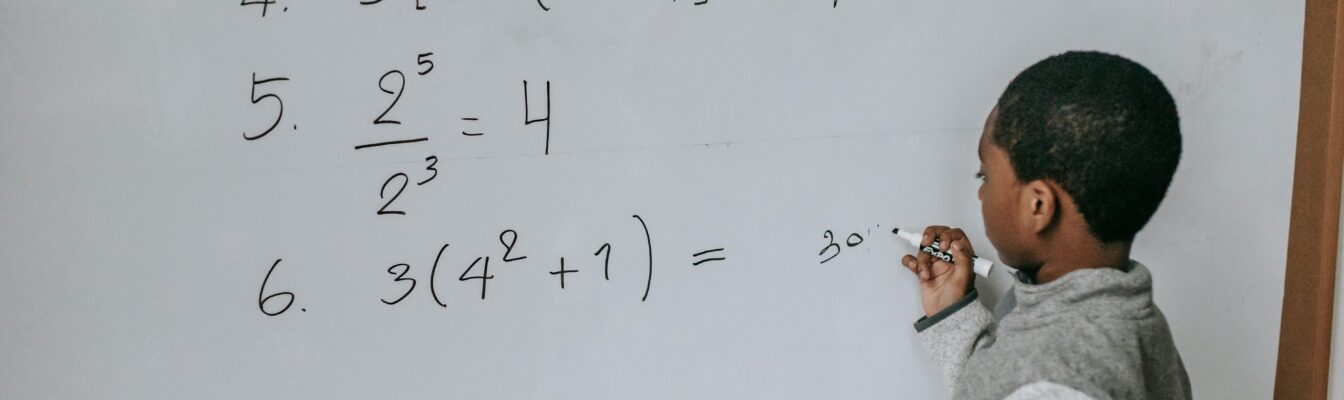 5. 2^5 / 2^3 = 4
6. 3(4² + 1) = 30